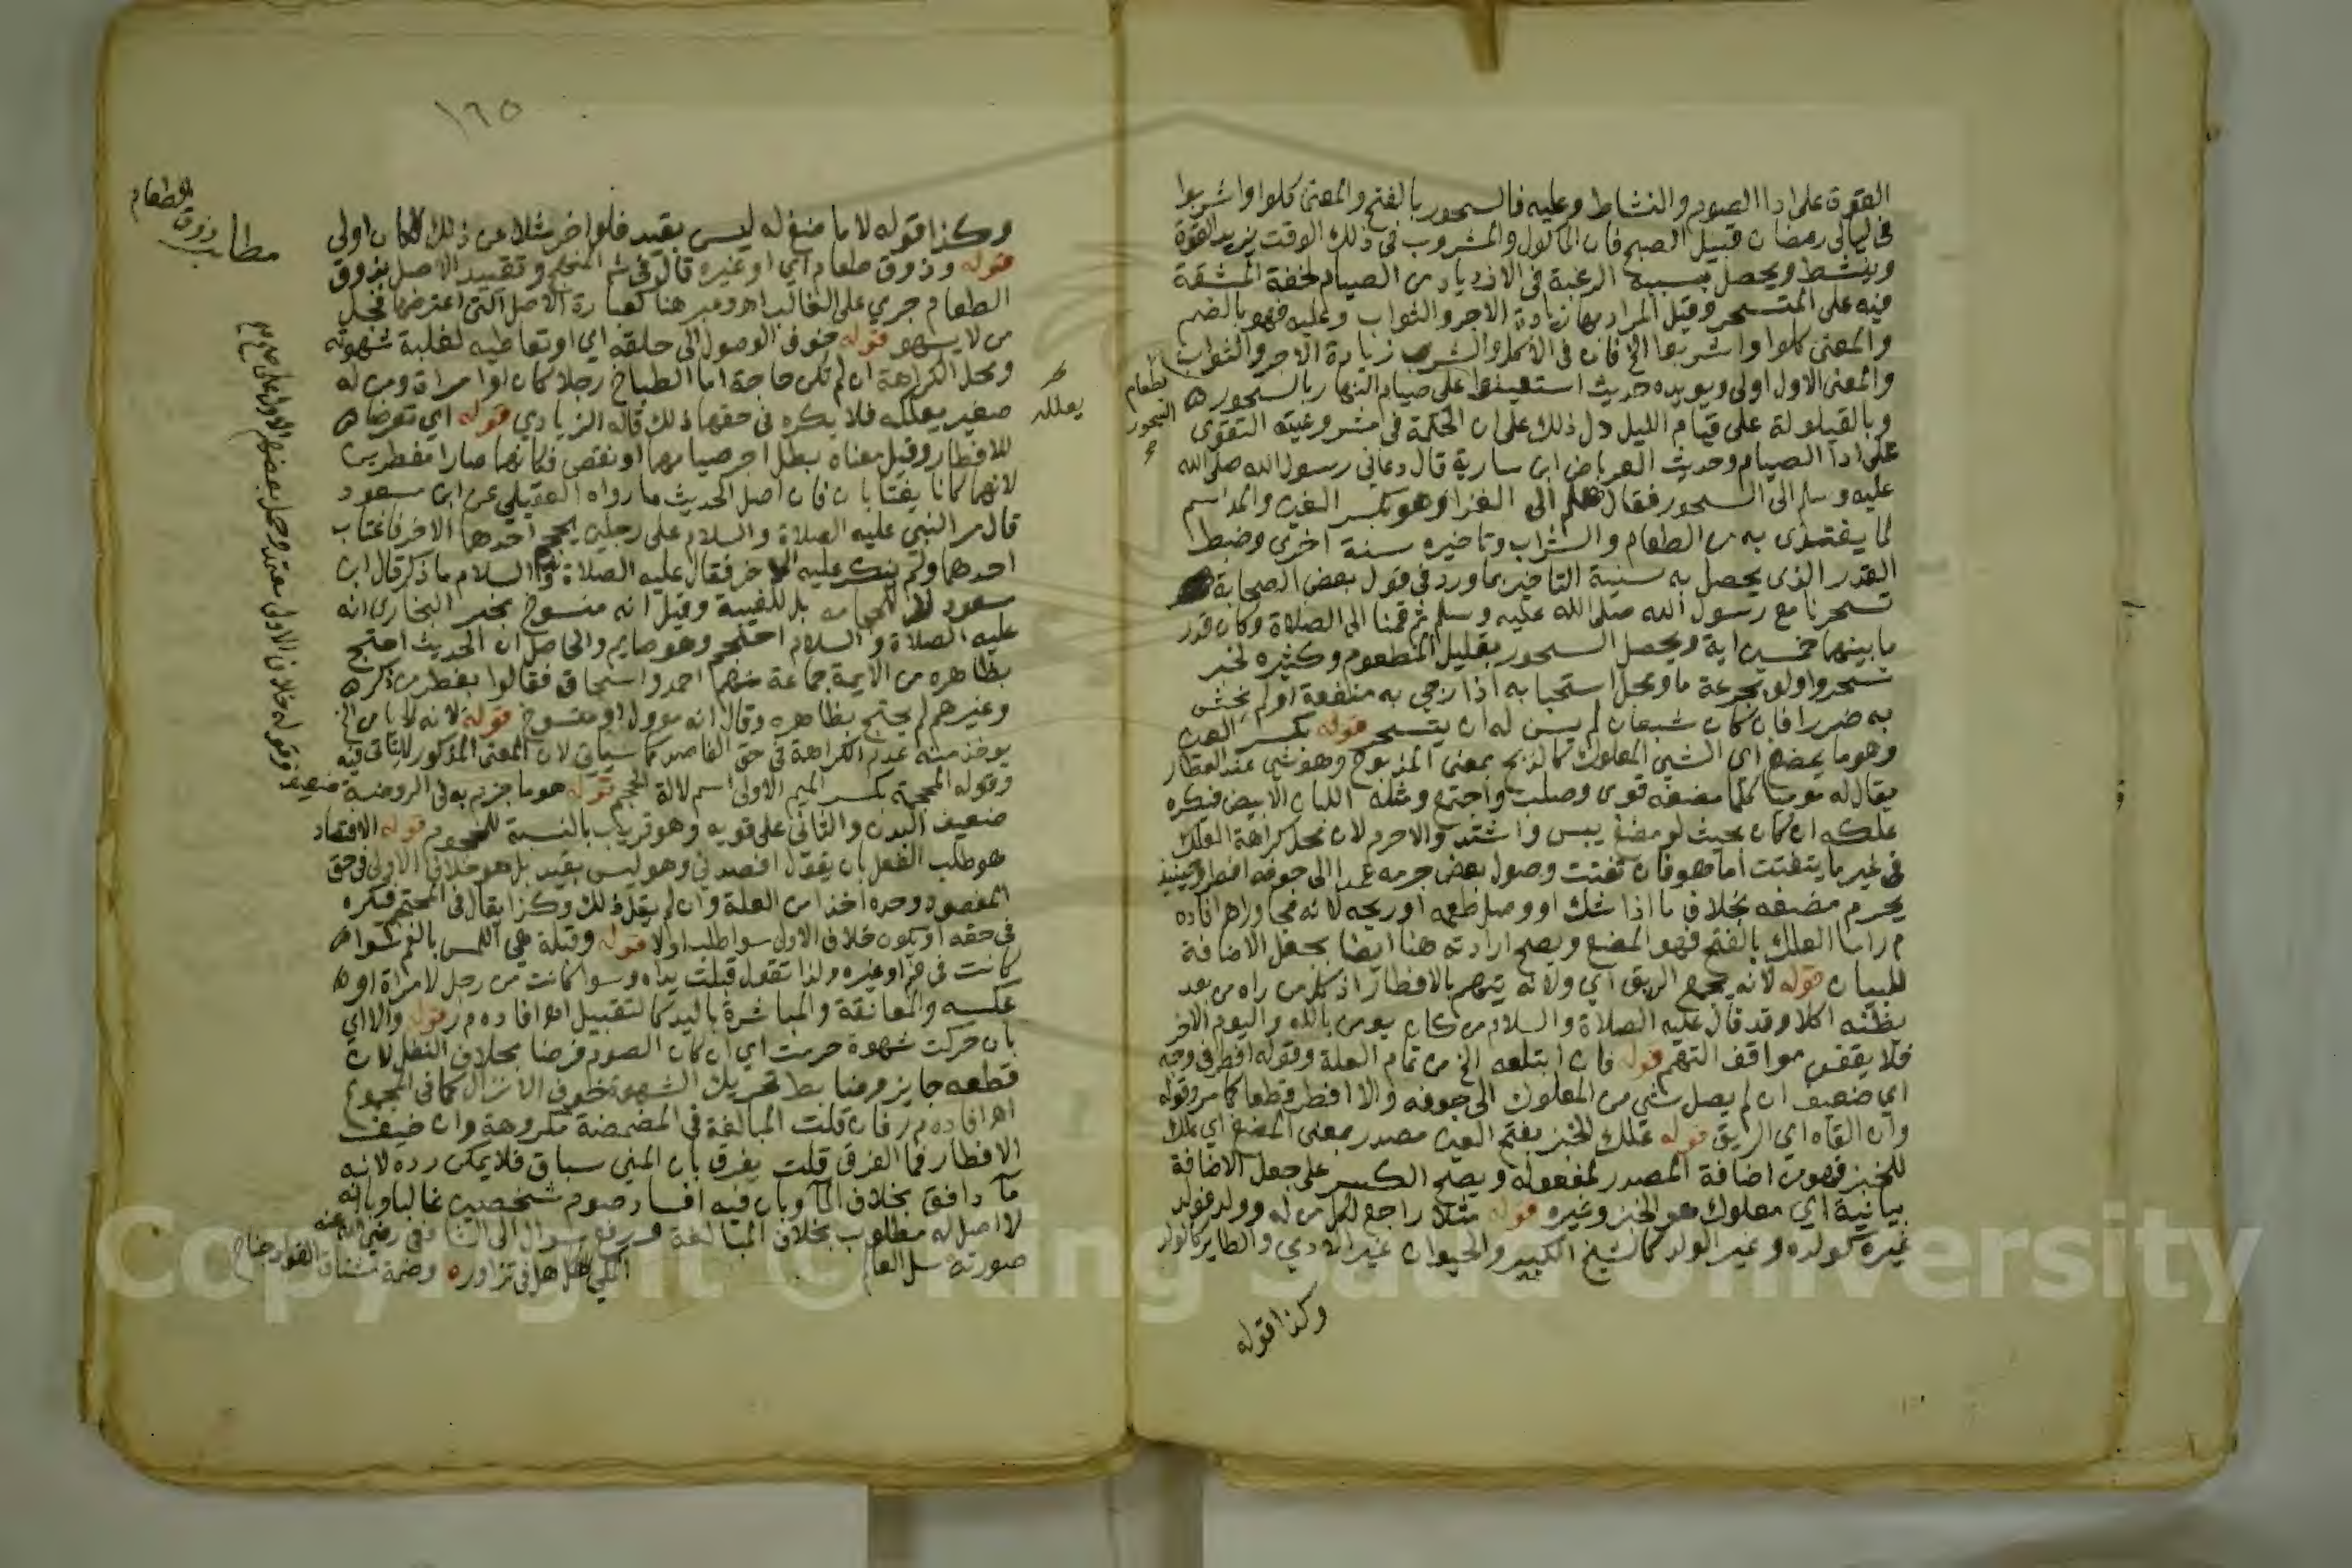 التقوي على اداا الصوم والنشاط وعليه فالسحور بالفتح والمعنى كلوا واشربوا
في ليالي رمضان قبيل الصبح فان الماكول والمشروب في ذلك الوقت يزيد القوة
وينشط ويحصل بسببه الرغبة في الازدياد من الصيام لخفة المشقة
فيه على المتسحر وقيل المراد بها زيادة الاجر والثواب وعليه فهو بالضم
والمعنى كلوا واشربوا الخ فان في الاكل والشرب زيادة الاجر والثواب
والمعنى الاول اولى ويويده حديث استعينوا على صيام النهار بالسحور
وبالقيلولة على قيام الليل دل ذلك على ان الحكمة في مشروعيته التقوى
على اداا الصيام وحديث العرباض ابن سارية قال دعاني رسول الله صلى الله
عليه وسلم الى السحور فقال هلم الى الغذا وهو بكسر الغين والمد اسم
لما يغتذى به من الطعام والشراب وتاخيره سنة اخرى وضبط
القدر الذي يحصل به سنية التاخير بما ورد في قول بعض الصحابة
تسحرنا مع رسول الله صلى الله عليه وسلم ثم قمنا الى الصلاة وكان قدر
ما بينهما خمسين اية ويحصل السحور بقليل المطعوم وكثيره لخبر
تسحروا ولو بجرعة ما ومحل استحبابه اذا رجي به منفعة او لم يخش
به ضررا فان كان شبعان لم يسن له ان يتسحر قوله بكسر العين
وهو ما يمضغ اي الشي المعلوك كالذبح بمعنى المذبوح وهو شي عند العطار
يقال له موميا كلما مضغه قوى وصلب واجتمع ومثله اللبان الابيض فيكره
علكه ان كان بحيث لو مضغ يبس واشتد والا حرم لان محل كراهة العلك
في غير ما يتفتت اما هو فان تفتت وصول بعض جرمه عمدا الى جوفه افطر وحينيذ
يحرم مضغه بخلاف ما اذا شك او وصل طعمه او ريحه لانه مجاور اهر افاده
م ر اما العلك بالفتح فهو المضغ ويصح ارادته هنا ايضا بجعل الاضافة
للبيان قوله لانه يجمع الريق اي ولانه يتهم بالافطار اذ كل من راه من بعد
يظنه اكلا وقد قال عليه الصلاة والسلام من كان يومن بالله واليوم الاخر
فلا يقفن مواقف التهم قوله فان ابتلعه الخ من تمام العلة وقوله افطر في وجه
اي ضعيف ان لم يصل شي من المعلوك الى جوفه والا افطر قطعا كما مر وقوله
وان القاه اي الريق قوله علك الخبز بفتح العين مصدر بمعنى المضغ اي علك
للخبز فهو من اضافة المصدر لمفعوله ويصح الكسر على جعل الاضافة
بيانية اي معلوك هو الخبز وغيره قوله مثلا راجع لكل من له وولد فولد
غيره كولده وغير الولد كالشيخ الكبير والحيوان غير الادمي والطاير كالولد
وكذا قوله
لطعام
السحور
١٦٥
وكذا قوله لا ما مضغ له ليس بقيد فلو اخر مثلا عن ذلك لكان اولى
قوله وذوق طعام اي او غيره قال في شرح المنهج وتقييد الاصل بذوق
الطعام جري على الغالب اهر وعبر هنا كعبارة الاصل التي اعترضها فجل
من لا يسهو قوله خوف الوصول الى حلقه اي او تعاطيه لغلبة شهوته
ومحل الكراهة ان لم تكن حاجة اما الطباخ رجلا كان او امراة ومن له
صغير يعلله فلا يكره في حقهما ذلك قاله الزيادي قوله اي تعرضا
للافطار وقيل معناه بطل اجر صيامهما او نقص فكانهما صارا مفطرين
لانهما كانا يغتابان فان اصل الحديث ما رواه العقيلي عن ابن مسعود
قال مر النبي عليه الصلاة والسلام على رجلين يحجم احدهما الاخر فاغتاب
احدهما ولم ينكر عليه الاخر فقال عليه الصلاة والسلام ما ذكر قال ابن
مسعود لا للحجامه بل للغيبة وقيل انه منسوخ بخبر البخاري انه
عليه الصلاة والسلام احتجم وهو صايم والحاصل ان الحديث احتج
بظاهره من الايمة جماعة منهم احمد واسحاق فقالوا بفطر من ذكر
وغيرهم لم يحتج بظاهره وقال انه موول او منسوخ قوله لانه لما من الخ
يوخذ منه عدم الكراهة في حق الفاصد كما سياتي لان المعنى المذكور لا ياتي فيه
وقوله المحجمة بكسر الميم الاولى اسم لالة الحجم قوله هو ما جزم به في الروضة
ضعيف البدن والثاني على قويه وهو قريب بالنسبة للمحجوم قوله الافتصاد
هو طلب الفعل بان يقول افصدني وهو ليس بقيد بل هو خلاف الاولى في حق
المفصود وحده اخذا من العلة وان لم يقل ذلك وكذا يقال في المحتجم فيكره
في حقه او يكون خلاف الاولى سوا طلب اولا قوله وقبلة هي اللمس بالفم سوا
كانت في فم او غيره ولذا تقول قبلت يداه وسوا كانت من رجل لامراة او
عكسه والمعانقة والمباشرة باليد كالتقبيل اهر افاده م ر قوله والا اي
بان حركت شهوة حرمت اي ان كان الصوم فرضا بخلاف النفل لان
قطعه جايز وضابط تحريك الشهوة خوف الانزال كما في المجموع
اهر افاده م ر فان قلت المبالغة في المضمضة مكروهة وان خيف
الافطار فما الفرق قلت يفرق بان المني سباق فلا يمكن رده لانه
ما دافق بخلاف الما وبان فيه افساد صوم شخصين غالبا وبانه
لا اصل له مطلوب بخلاف المبالغة ورفع سوال الى الشافعي رضي الله عنه
صورته سل العالم المكي هل في تزاور وضمة مشتاق الفواد جناح
مطلب
ذوق الطعام
يعلله